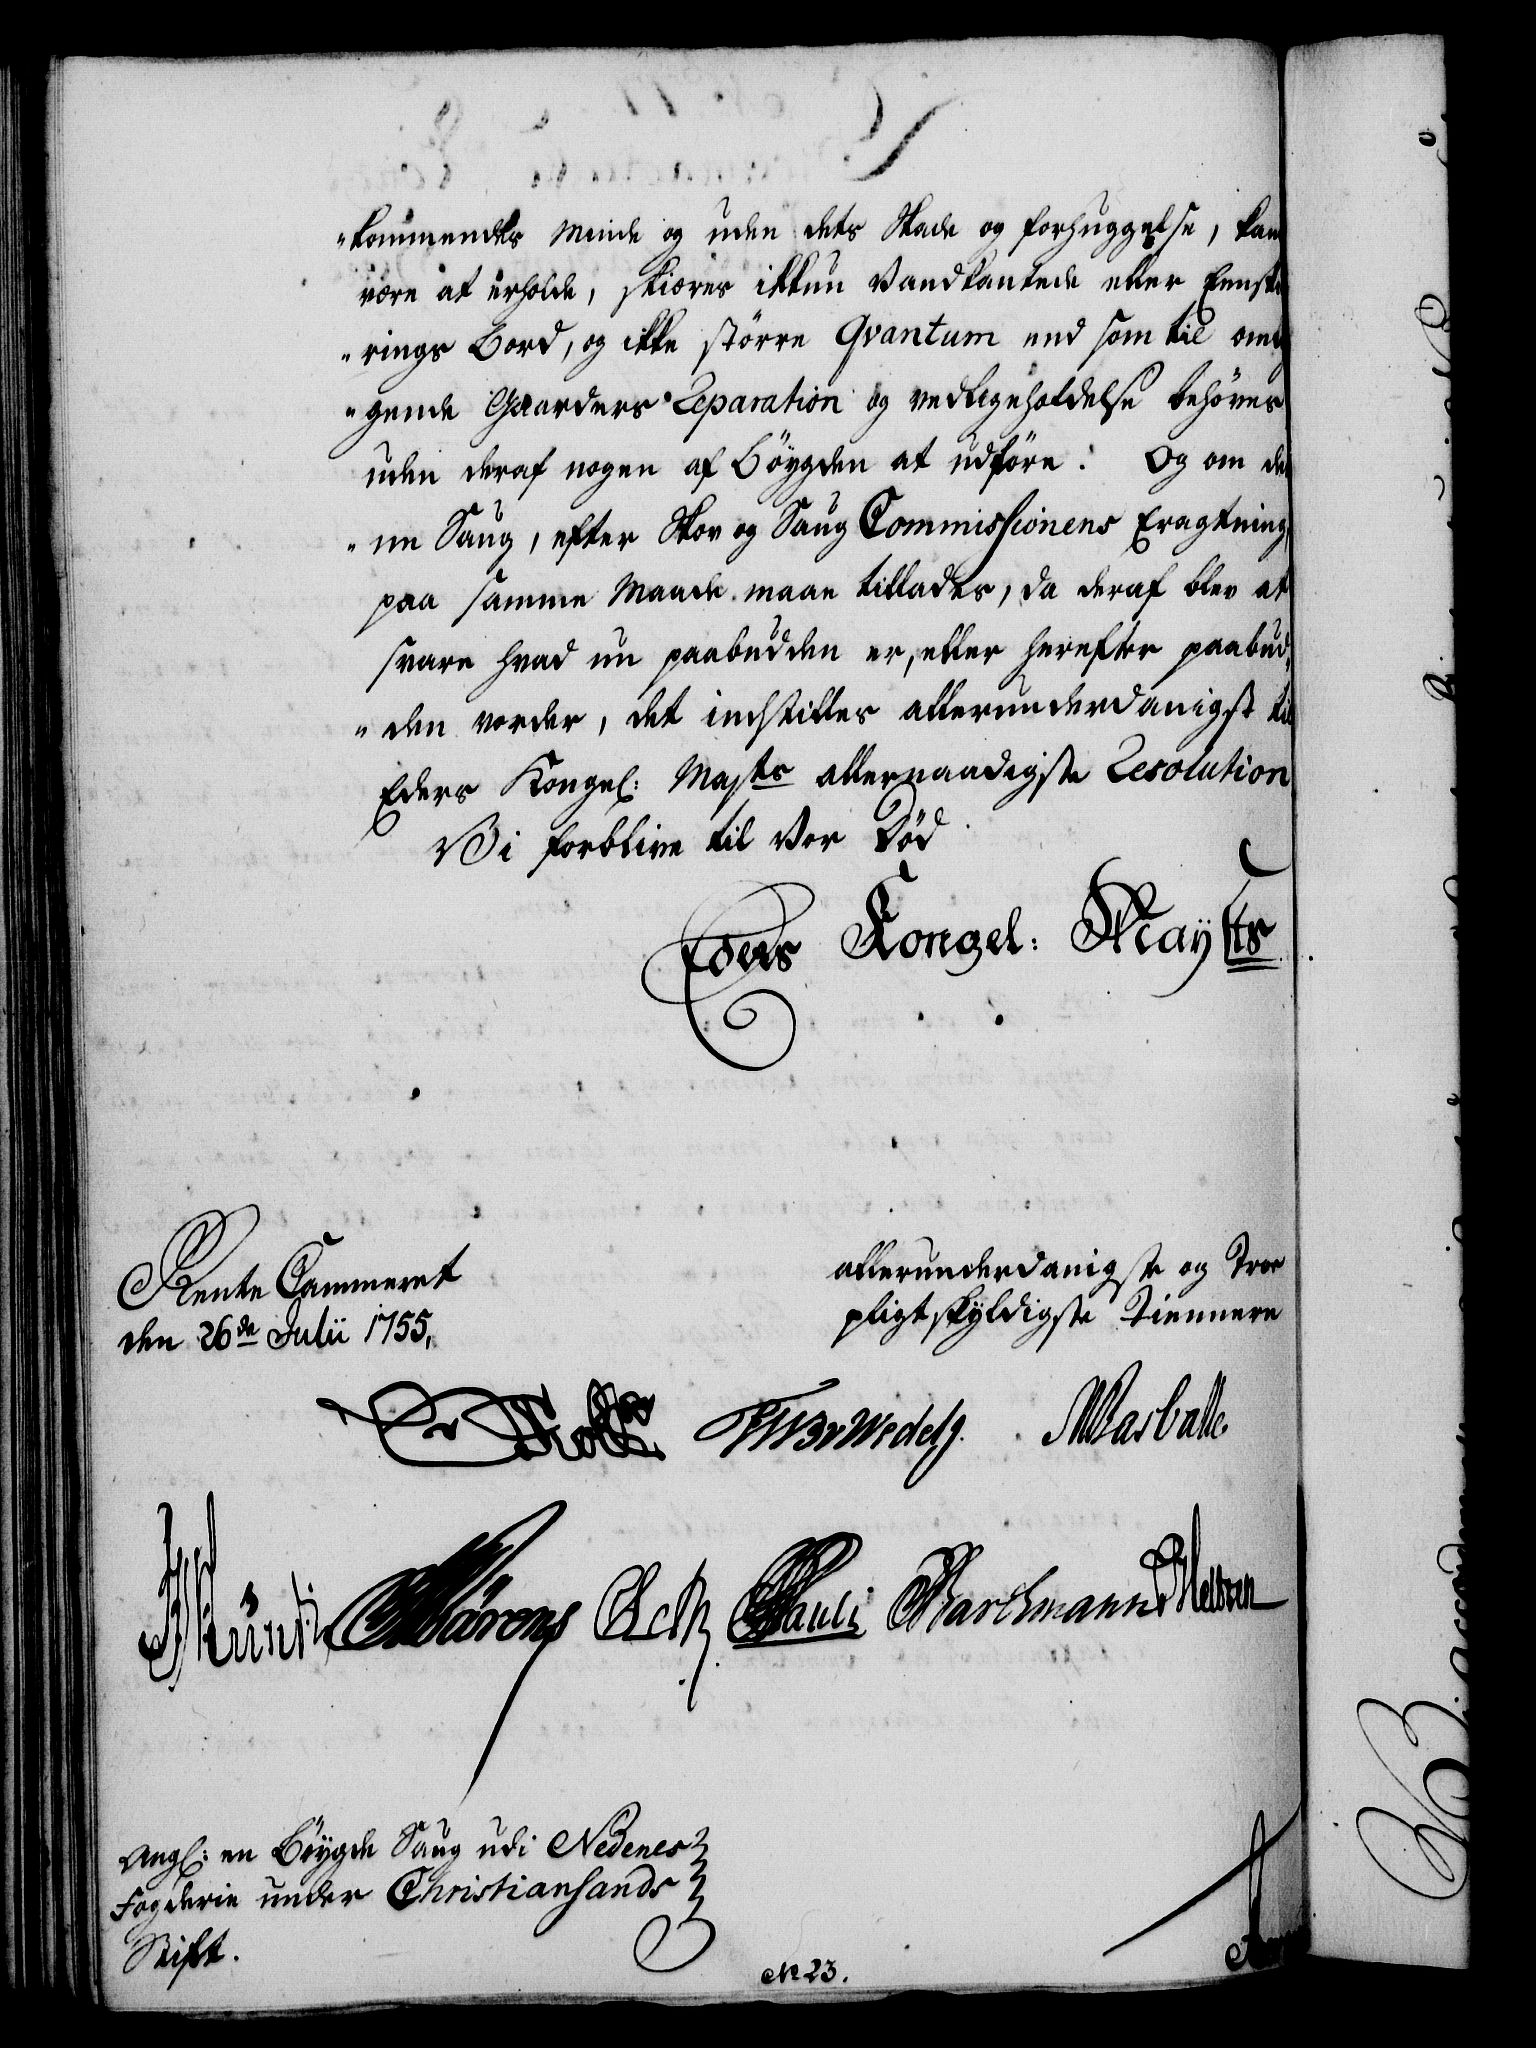 "kommendes Minde og uden dets Skade og forhuggelse, kan
være at erholde, skiæres ikkun Vandkantede eller Eenskæ
"rings Bord, og ikke större Qvantum end som til omli
"gende Gaarders Reparation og vedligeholdelse behöves
uden deraf nogen af Böygden at udföre: Og om den
"ne Saug, efter Skov og Saug Commissionens Eragtning,
paa samme Maade maae tillades, da deraf blev at
svare hvad nu paabudden er, eller herefter paabud
"den vorder, det indstilles allerunderdanigst til
Eders Kongel: Majts allernaadigste Resolution
Vi forblive til Vor Död
Eders Kongel: Mayts
Rente Cammeret
den 26de Julii 1755,
allerunderdanigste og Troe
pligtskyldigste Tiennere
Holst Wedelj.
Pauli Barthmann
Angl: en Böygde Saug udi Nedenes
Fogderie under Christiansands
Stift.
No 23.